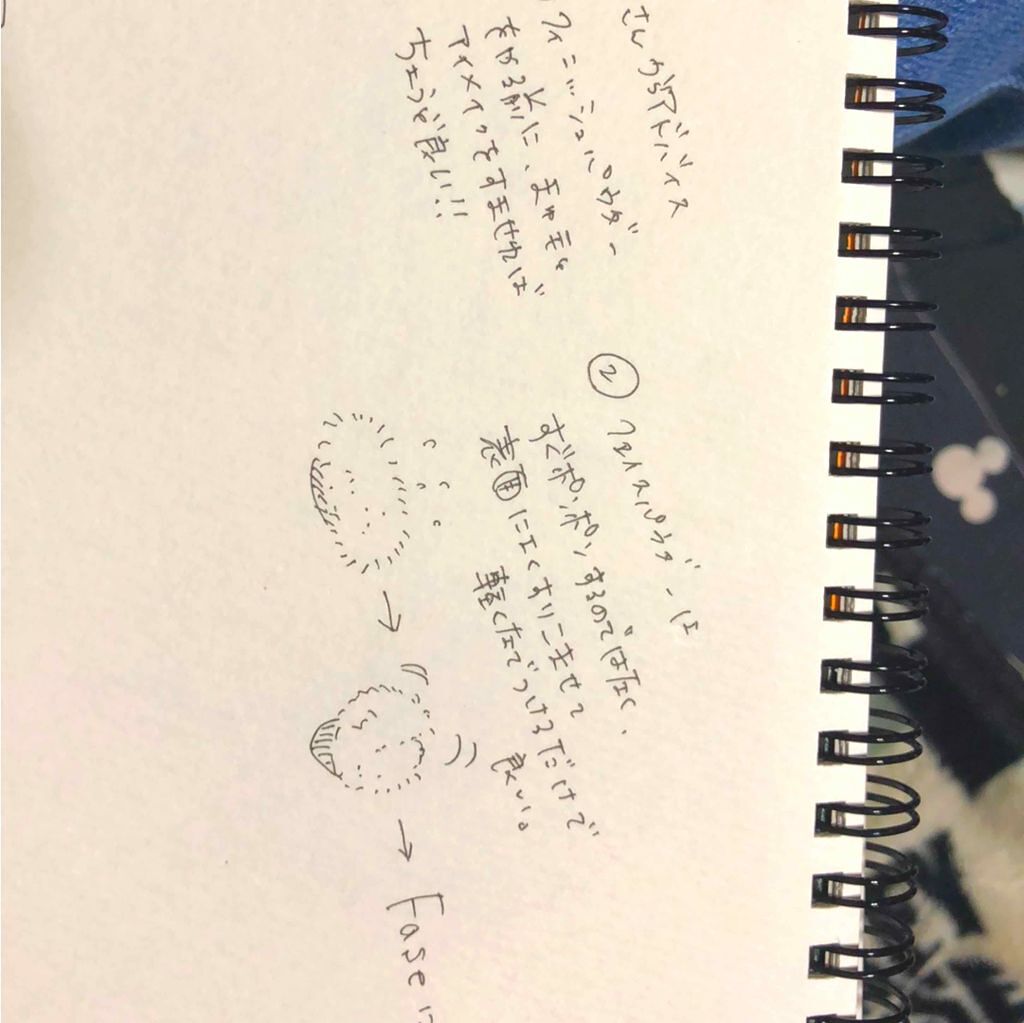 さんからアドバイス
フィニッシュパウダー
をする前に、まゆ毛や
アイメイクをすませれば
ちょうど良い!!
② フェイスパウダーは
すぐポンポンするのではなく、
表面によくすりこませて
軽くなでつけるだけで
良い。
→
→ Faseに